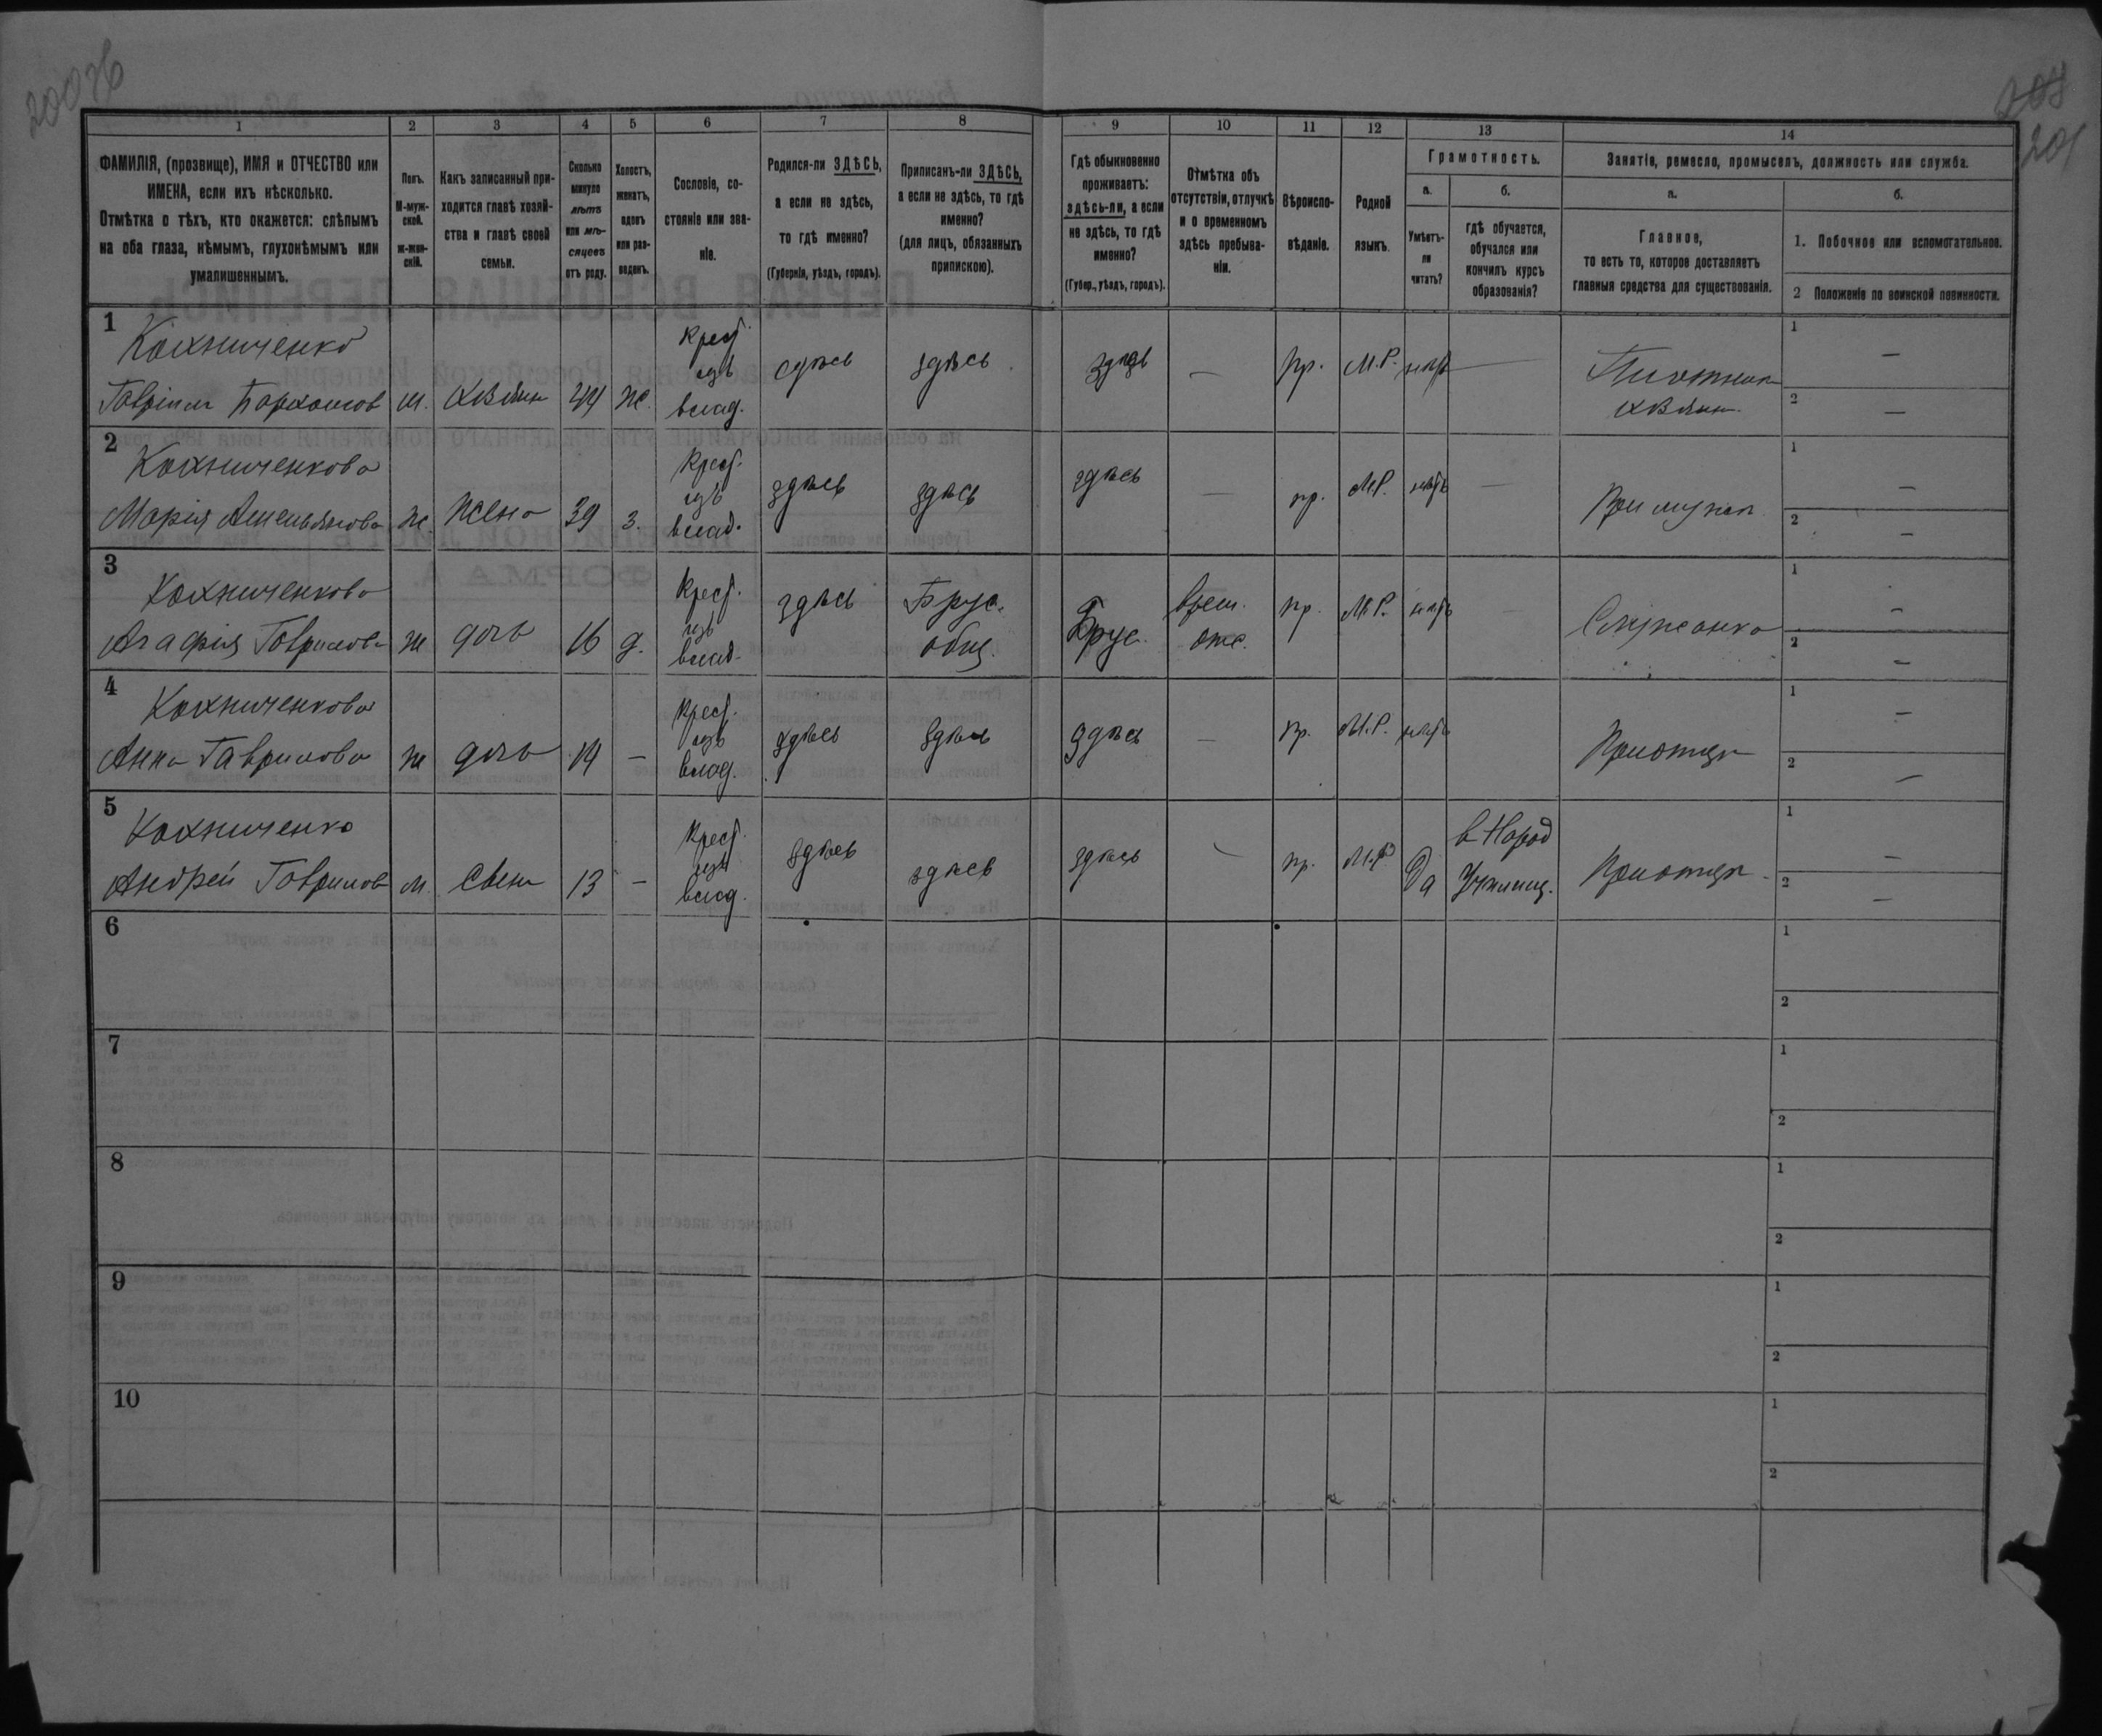 200об
203
201
1
2
3
4
5
6
7
8
9
10
11
12
13
14
ФАМИЛІЯ, (прозвище), ИМЯ и ОТЧЕСТВО или
ИМЕНА, если ихъ нѣсколько.
Отмѣтка о тѣхъ, кто окажется: слѣпымъ
на оба глаза, нѣмымъ, глухонѣмымъ или
умалишеннымъ.
Полъ.
М-муж-
ской.
ж-жен-
скій.
Какъ записанный при-
ходится главѣ хозяй-
ства и главѣ своей
семьи.
Сколько
минуло
лѣтъ
или мѣ-
сяцевъ
отъ роду.
Холостъ,
женатъ,
вдовъ
или раз-
веденъ.
Сословіе, со-
стояніе или зва-
ніе.
Родился-ли ЗДѢСЬ,
а если не здѣсь,
то гдѣ именно?
(Губернія, уѣздъ, городъ).
Приписанъ-ли ЗДѢСЬ,
а если не здѣсь, то гдѣ
именно?
(для лицъ, обязанныхъ
припискою).
Гдѣ обыкновенно
проживаетъ:
здѣсь-ли, а если
не здѣсь, то гдѣ
именно?
(Губер., уѣздъ, городъ).
Отмѣтка объ
отсутствіи, отлучкѣ
и о временномъ
здѣсь пребыва-
ніи.
Вѣроиспо-
вѣданіе.
Родной
языкъ.
Грамотность.
а.
Умѣетъ-
ли
читать?
б.
гдѣ обучается,
обучался или
кончилъ курсъ
образованія?
Занятіе, ремесло, промыселъ, должность или служба.
а.
Главное,
то есть то, которое доставляетъ
главныя средства для существованія.
б.
1. Побочное или вспомогательное.
2 Положеніе по воинской повинности.
1
Кохниченко
Гавріилъ м. хозяин 44 ж.
Крест.
изъ
влад.
здѣсь здѣсь здѣсь — пр. М.Р. нѣтъ —
Плотник
хозяин
1 —
2 —
2
Кохниченкова
Марія Амельянова ж. жена 39 з.
Крест.
изъ
влад.
здѣсь здѣсь здѣсь — пр. М.Р. нѣтъ —
При мужѣ
1 —
2 —
3
Кохниченкова
Агафія Гаврилова ж дочь 16 д.
Крест.
изъ
влад.
здѣсь Брус.
общ.
Брус. врем.
отс.
пр. М.Р. нѣтъ
Служанка
1 —
2 —
4
Кохниченкова
Анна Гаврилова ж дочь 14 —
Крест.
изъ
влад.
здѣсь здѣсь здѣсь — пр. М.Р. нѣтъ
При отцѣ
1 —
2 —
5
Кохниченко
Андрей Гаврилов м. сын 13 —
Крест.
изъ
влад.
здѣсь здѣсь здѣсь — пр. М.Р. Да
в Народ
Училищ.
При отцѣ
1 —
2 —
6
1
2
7
1
2
8
1
2
9
1
2
10
1
2